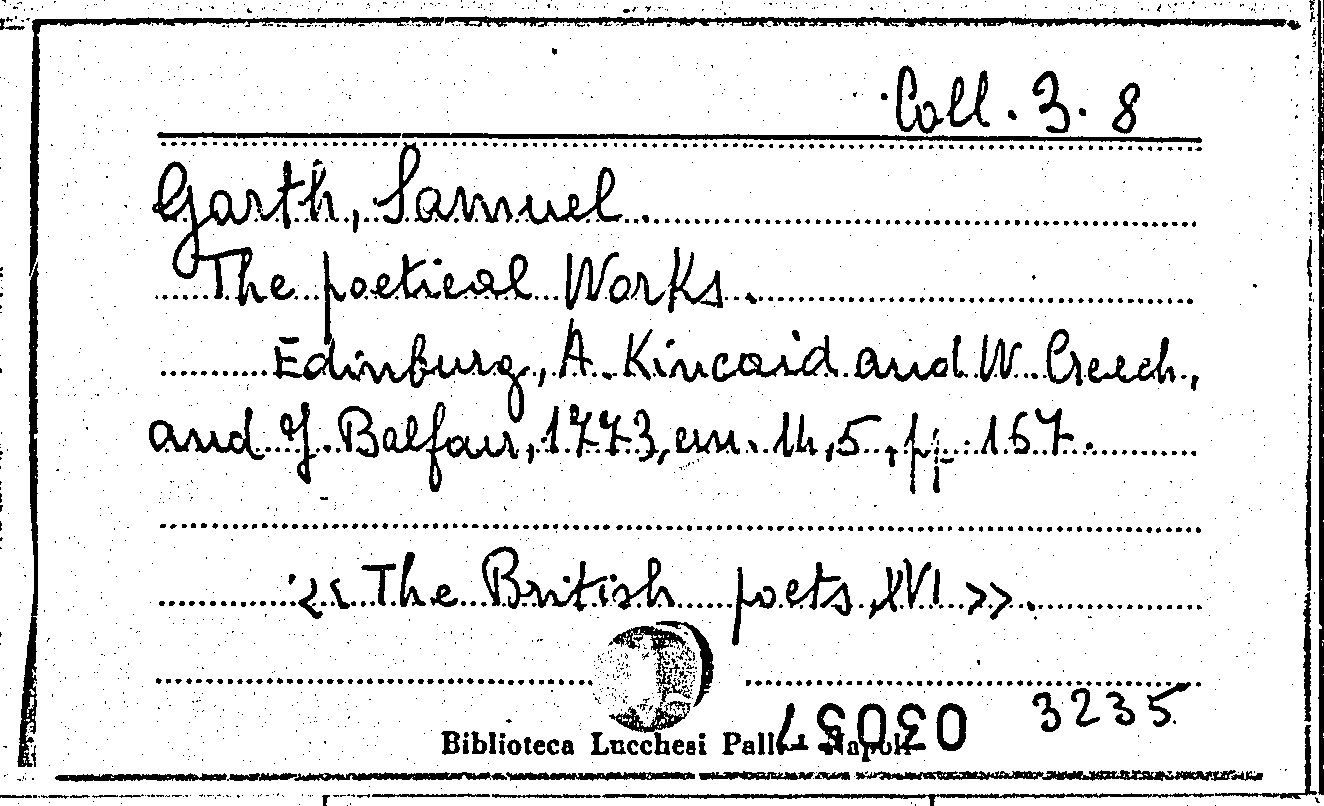 Coll. 3. 8
Garth, Samuel.
The poetical Works.
Edinburg, A. Kincaid and W. Creech,
and J. Balfour, 1773, cm. 14,5, pp. 167.
«The British poets, XVI».
3235
Biblioteca Lucchesi Palli - Napoli